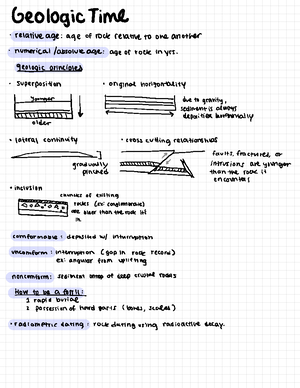 Geologic Time
• relative age: age of rock relative to one another
• numerical/absolute age: age of rock in yrs.
geologic principles
• superposition
younger
older
• original horizontality
due to gravity,
sediment is always
deposition horizontally
• lateral continuity
gradually
pinched
• cross cutting relationships
faults, fractures, or
intrusions are younger
than the rock it
encounters
• inclusion
chunks of existing
rocks (ex: conglomerate)
are older than the rock itf
in
conformable: deposited w/ interruption
unconform: interruption (gap in rock record)
ex: angular from uplifting
nonconform: sediment ontop of deep crustal rocks
How to be a fossil:
1 rapid burial
2 possession of hard parts (bones, scales)
• radiometric dating: rock dating using radioactive decay.